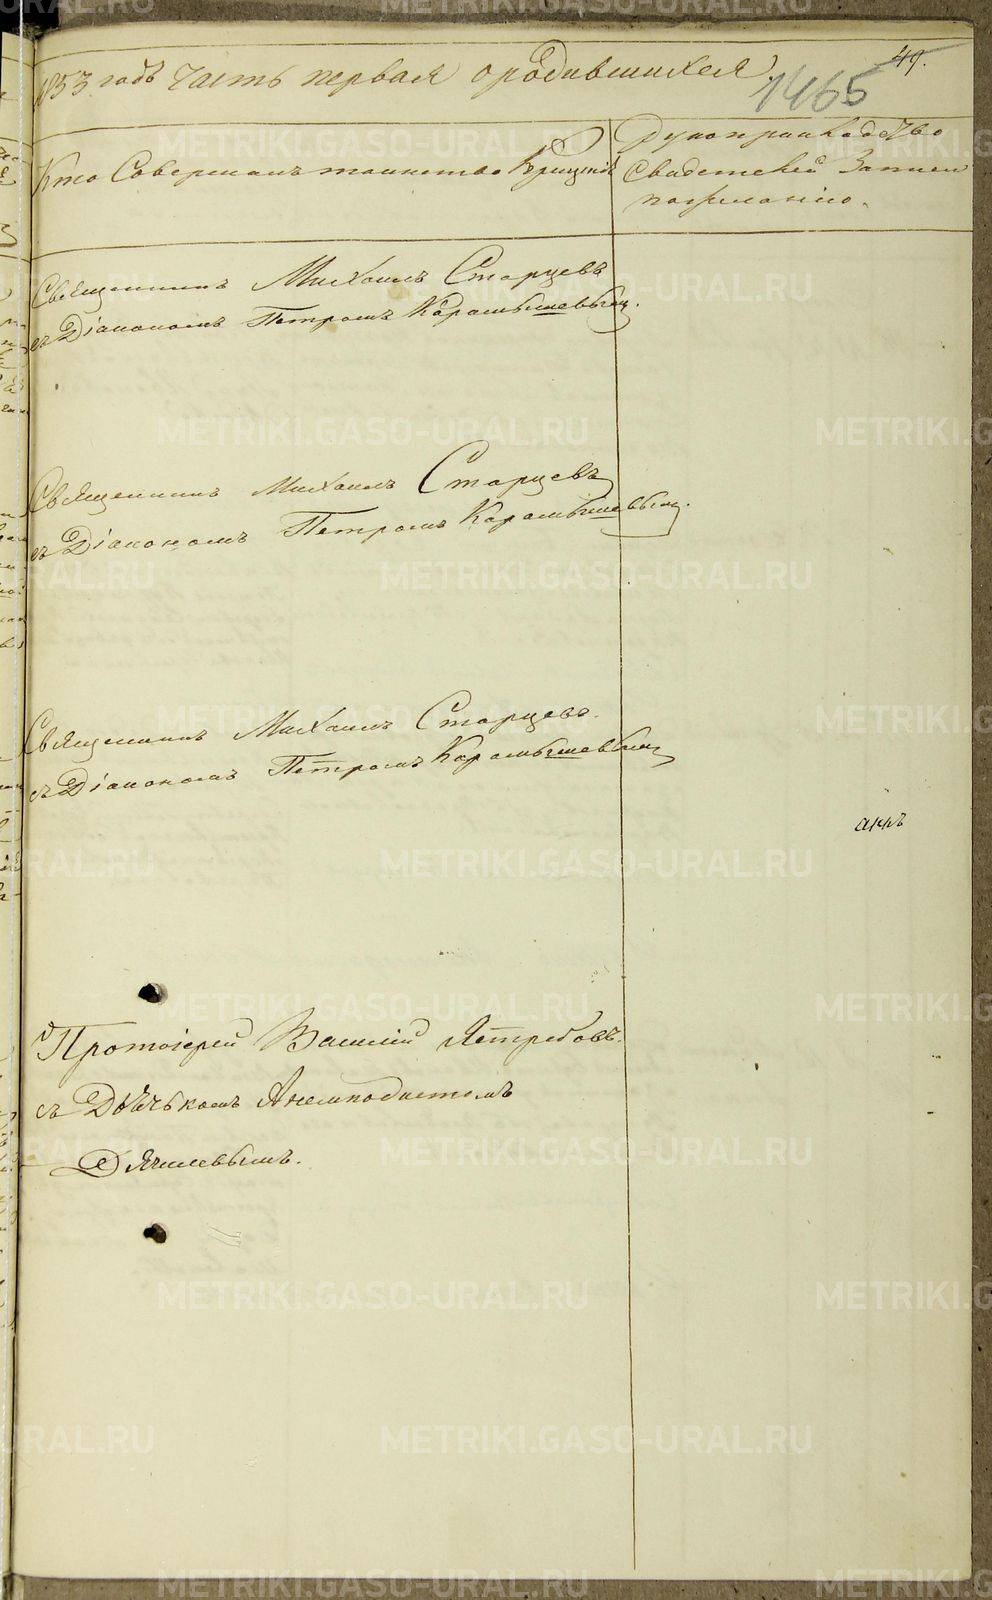 49.
1853 годъ Часть первая о родившихся.
1465
Кто Совершалъ таинство Крещенія
Рукоприкладство
Свидетелей Записи
по желанію.
Священникъ Михаилъ Старцевъ
съ Діакономъ Петромъ Карамышевымъ.
Священникъ Михаилъ Старцевъ
съ Діакономъ Петромъ Карамышевымъ.
Священникъ Михаилъ Старцевъ.
съ Діакономъ Петромъ Карамышевымъ
Протоіерей Василій Ястребовъ.
съ Дьячькомъ Анемподистомъ
Дягилевымъ.
METRIKI.GASO-URAL.RU